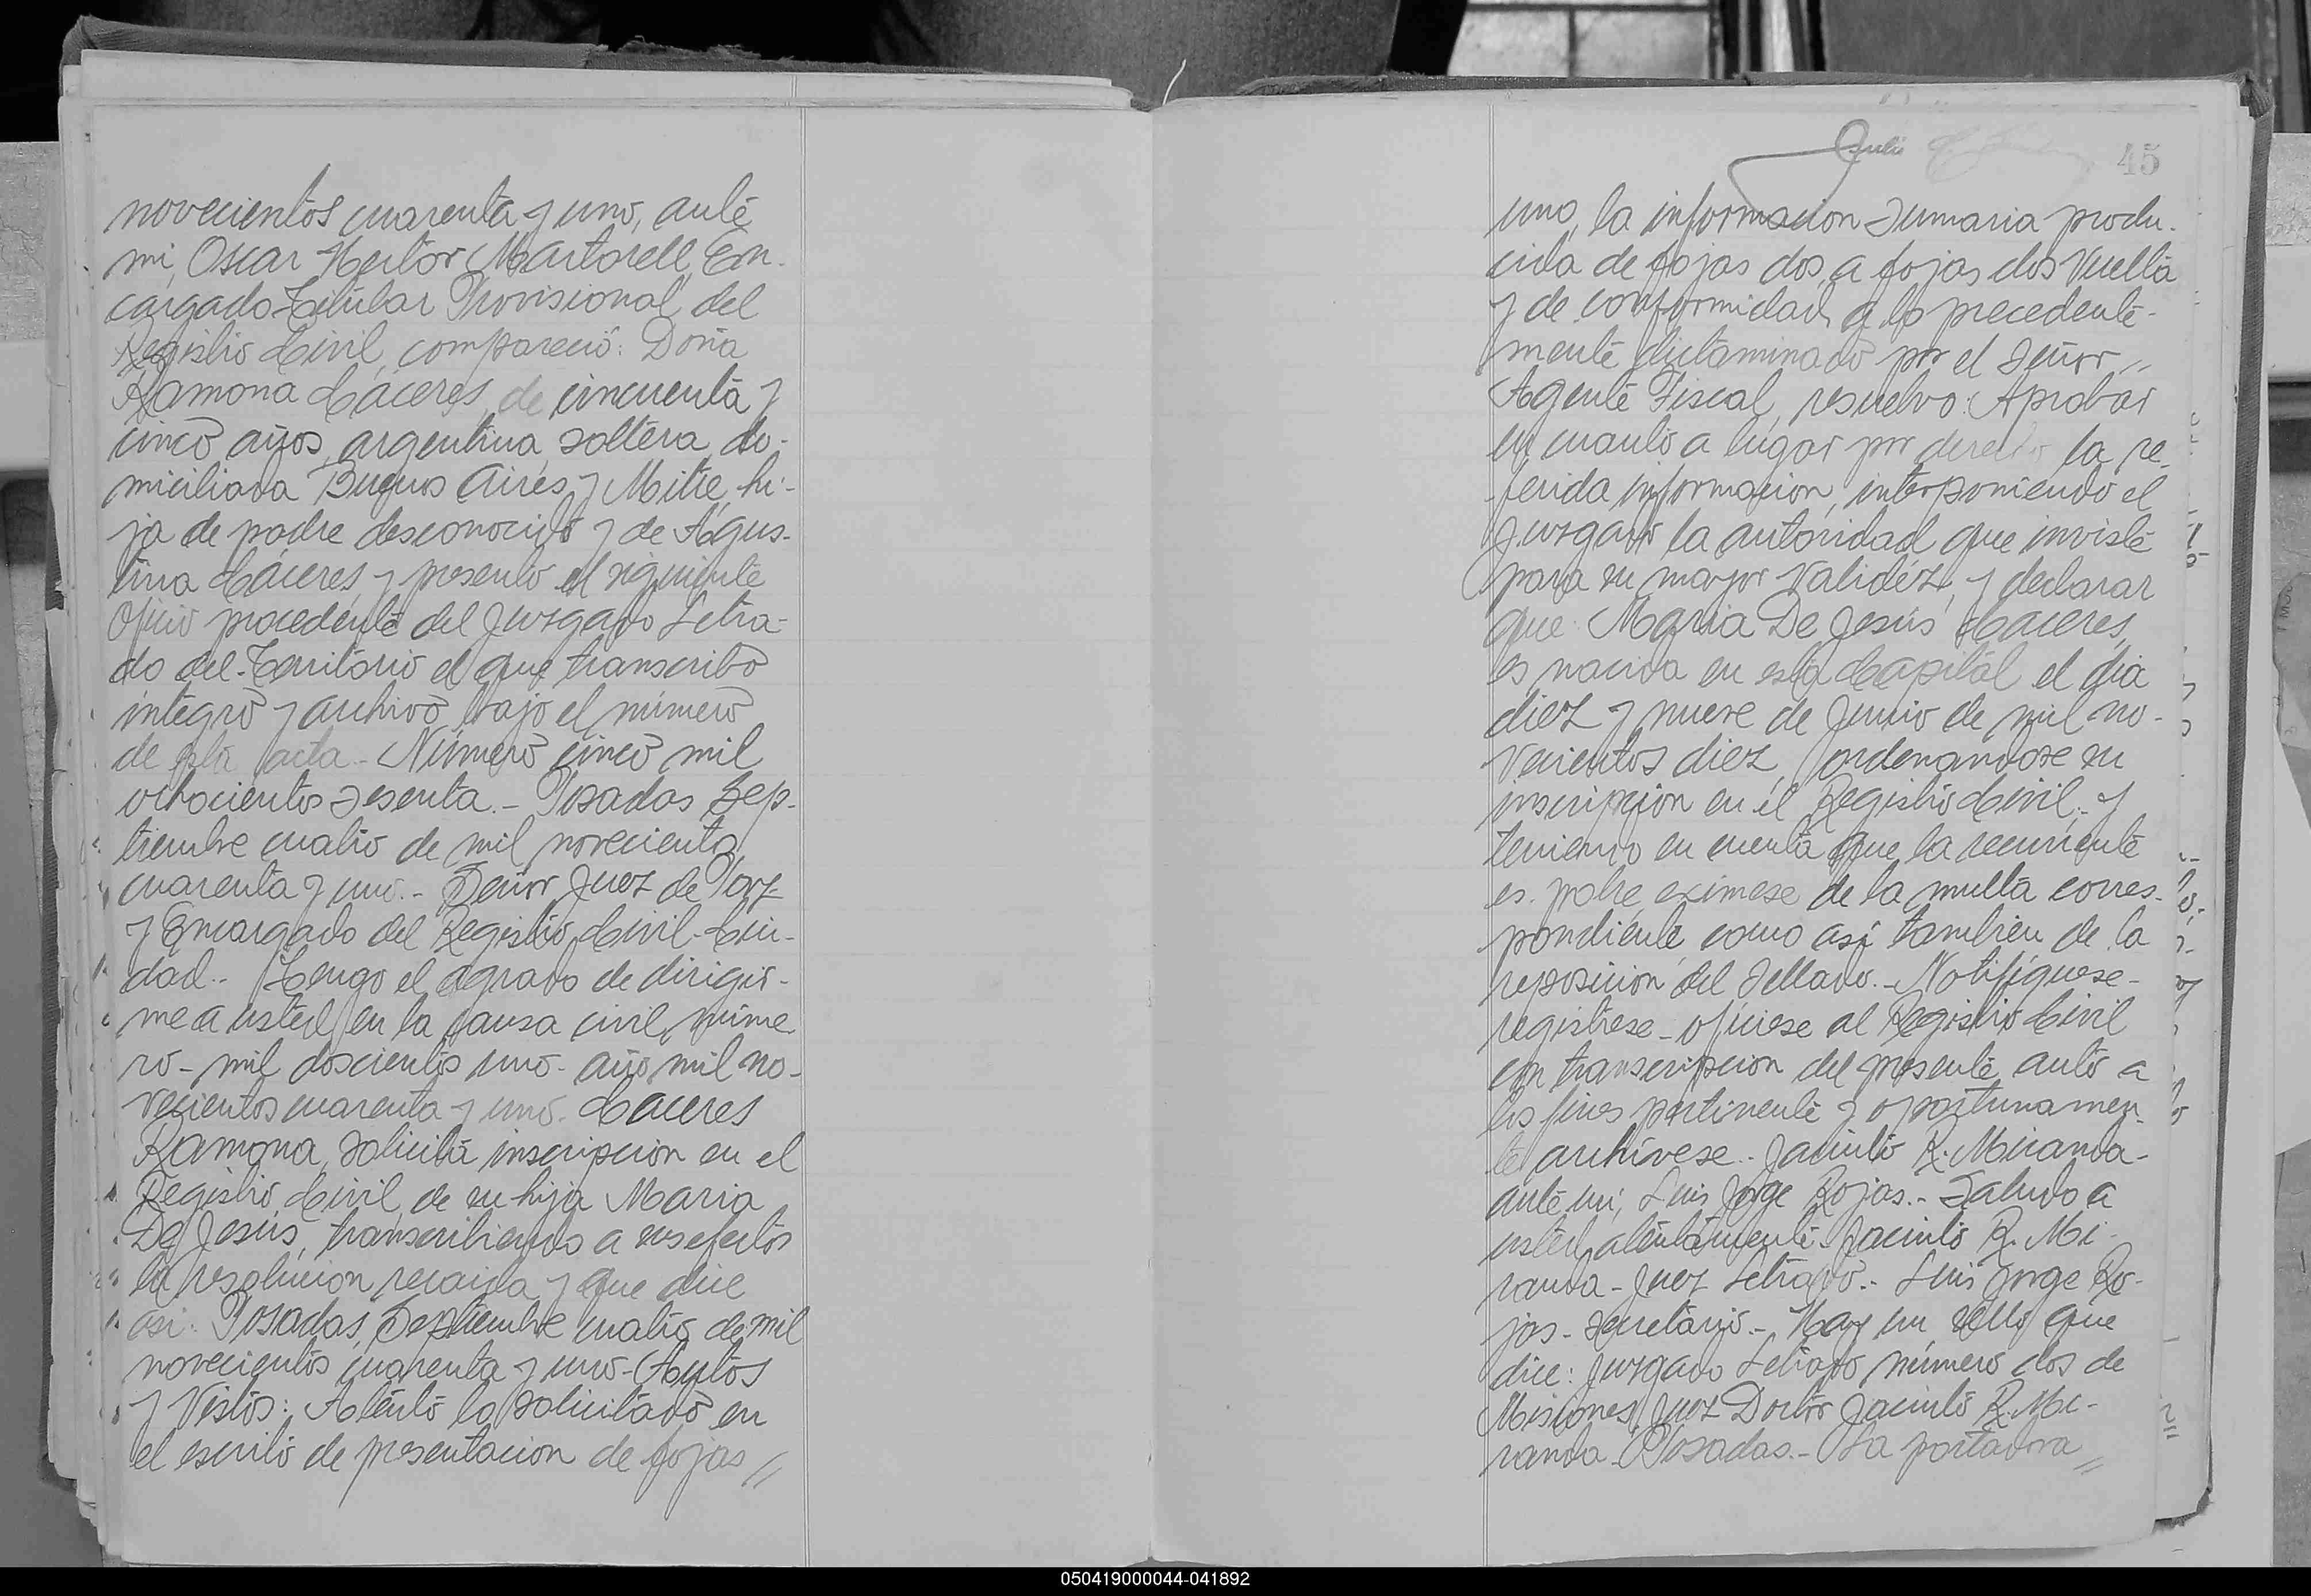 novecientos cuarenta y uno, ante
mi, Oscar Hector Martorell, En-
cargado Titular Provisional del
Registro Civil, compareció: Doña
Ramona Cáceres, de cincuenta y
cinco años, argentina, soltera, do-
miciliada Buenos Aires y Mitre, hi-
ja de padre desconocido y de Agus-
tina Cáceres, y presentó el siguiente
Oficio procedente del Juzgado Letra-
do del Territorio el que transcribo
integro y archivo bajo el número
de esta acta.- Número cinco mil
ochocientos sesenta.- Posadas Sep-
tiembre cuatro de mil novecientos
cuarenta y uno.- Señor Juez de Paz
y Encargado del Registro Civil-Ciu-
dad.- Tengo el agrado de dirigir-
me a usted en la causa civil, núme-
ro- mil doscientos uno- año mil no-
vecientos cuarenta y uno- Cáceres
Ramona, solicita inscripcion en el
Registro Civil de su hija Maria
De Jesús, transcribiendo a sus efectos
la resolucion recaida y que dice
asi: Posadas, Septiembre cuatro de mil
novecientos cuarenta y uno- Autos
y Vistos: Atento lo solicitado en
el escrito de presentacion de fojas //
45
uno, la informacion sumaria produ-
cida de fojas dos a fojas dos vuelta
y de conformidad a lo precedente-
mente dictaminado por el Señor //
Agente Fiscal, resuelvo: Aprobar
en cuanto a lugar por derecho la re-
ferida informacion, interponiendo el
Juzgado la autoridad que inviste
para su mayor validéz, y declarar
que Maria De Jesús Cáceres,
es nacida en esta Capital el dia
diez y nueve de Junio de mil no-
vecientos diez, ordenandose su
inscripcion en el Registro Civil- y
teniendo en cuenta que la recurrente
es pobre eximese de la multa corres-
pondiente como asi tambien de la
reposicion del sellado.- Notifiquese-
registrese- oficiese al Registro Civil
con transcripcion del presente auto a
los fines pertinente y oportunamen-
te archivese.- Jacinto R. Miranda-
ante mi, Luis Jorge Rojas.- Saludo a
usted atentamente- Jacinto R. Mi-
randa- Juez Letrado.- Luis Jorge Ro-
jas- Secretario- Hay un sello que
dice: Juzgado Letrado número dos de
Misiones, Juez Doctor Jacinto R. Mi-
randa- Posadas.- La portadora //
050419000044-041892